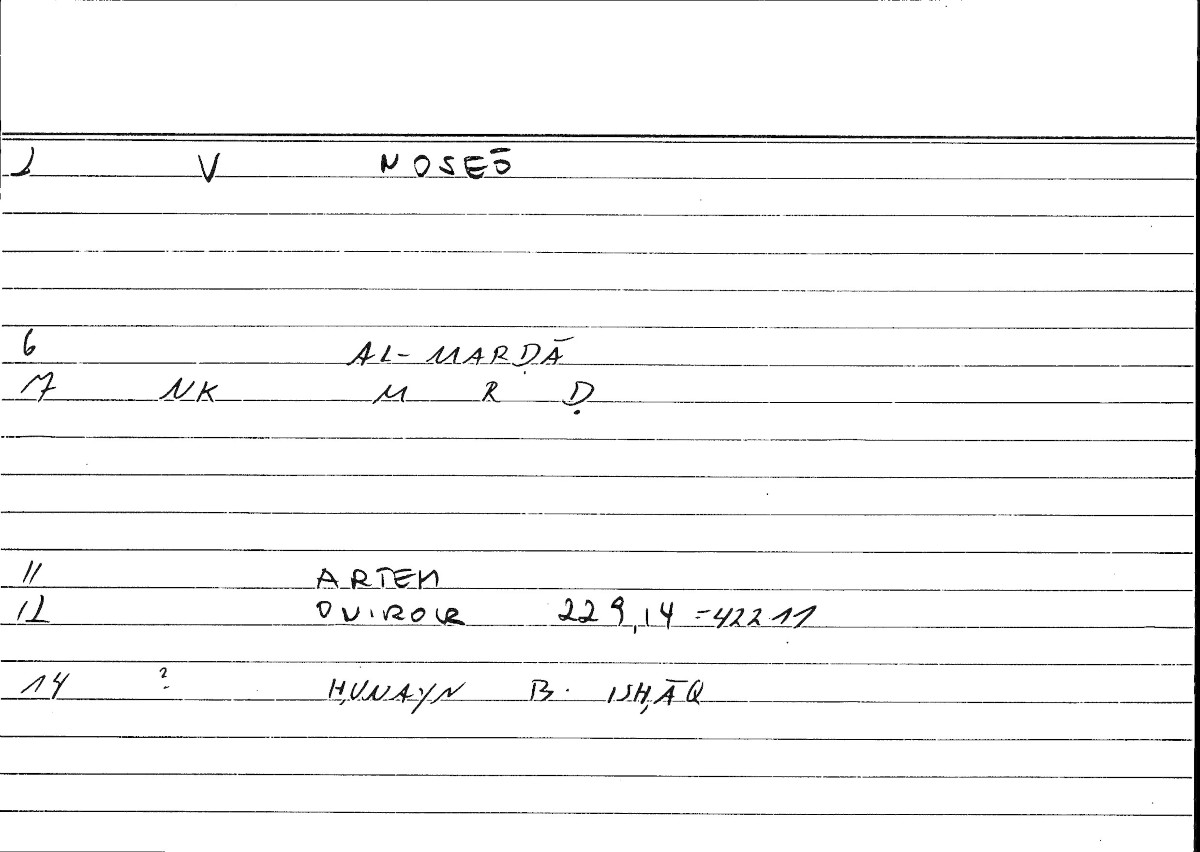 2 V NOSEŌ
6 AL-MARḌĀ
7 NK M R Ḍ
11 ARTEM
12 229,14 =42211
14 ? ḤUNAYN B. ISḤĀQ